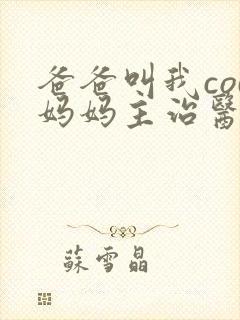 爸爸叫我co
妈妈主治醫
蘇雪晶